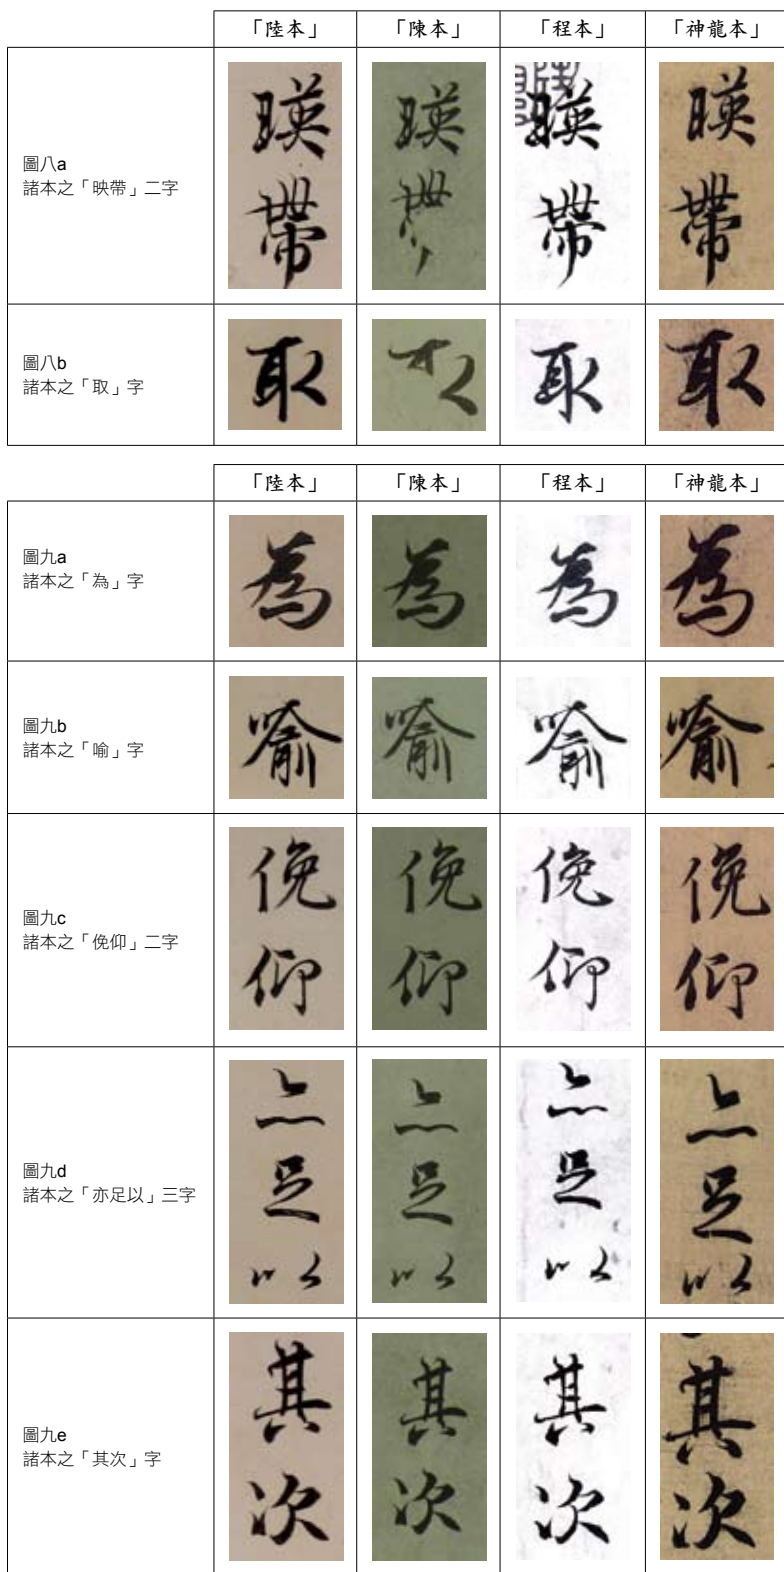 「陸本」 「陳本」 「程本」 「神龍本」
圖八a
諸本之「映帶」二字
暎 暎 暎 暎
帶 帶 帶
圖八b
諸本之「取」字
取 取 取 取
「陸本」 「陳本」 「程本」 「神龍本」
圖九a
諸本之「為」字
為 為 為 為
圖九b
諸本之「喻」字
喻 喻 喻 喻
圖九c
諸本之「俛仰」二字
俛 俛 俛 俛
仰 仰 仰 仰
圖九d
諸本之「亦足以」三字
亦 亦 亦 亦
足 足 足 足
以 以 以 以
圖九e
諸本之「其次」字
其 其 其 其
次 次 次 次